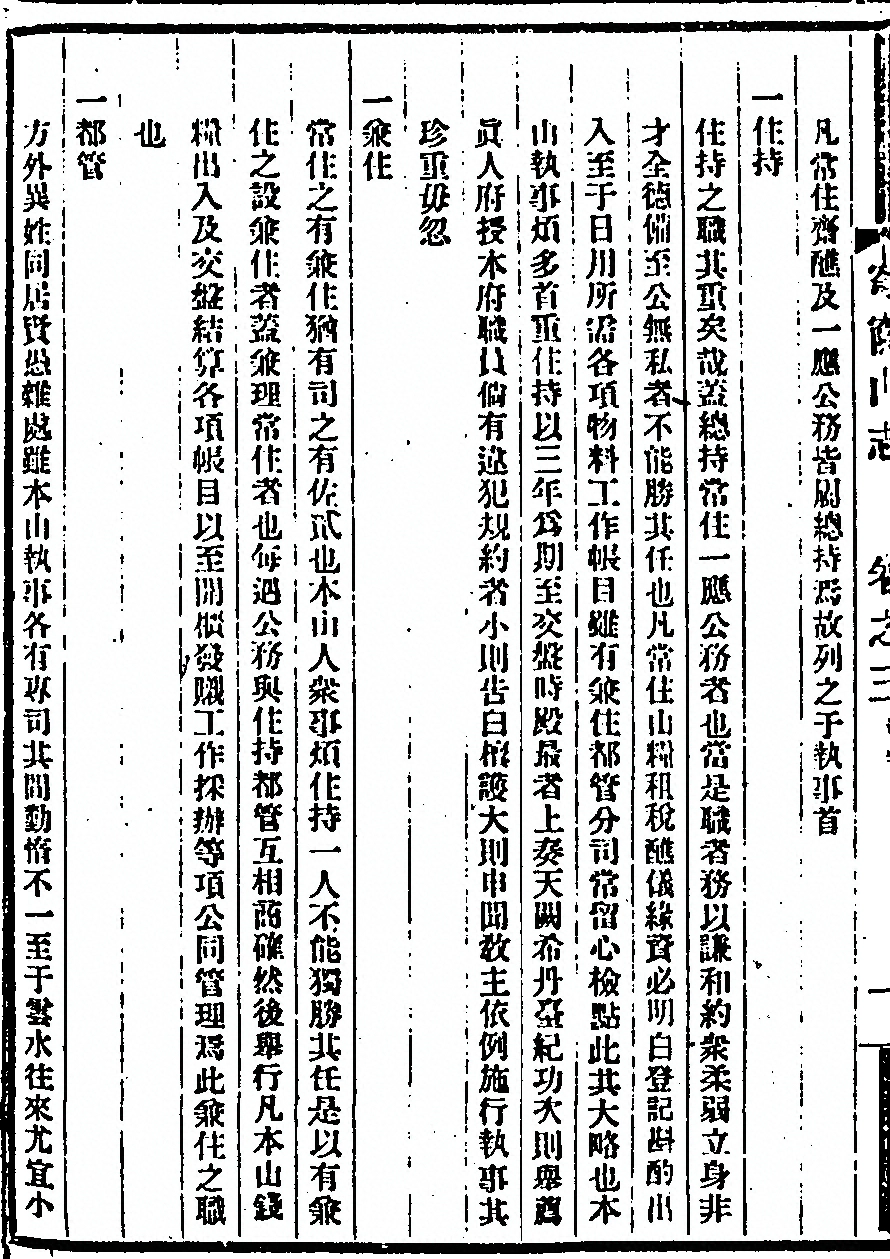 山志 卷之三
凡常住齋醮及一應公務皆關總持焉故列之于執事首
一住持
住持之職其重矣哉蓋總持常住一應公務者也當是職者務以謙和約衆柔弱立身非
才全德備至公無私者不能勝其任也凡常住山糧租稅醮儀緣資必明白登記斟酌出
入至于日用所需各項物料工作帳目雖有兼住都管分司當留心檢點此其大略也本
山執事煩多首重住持以三年爲期至交盤時殿最者上奏天闕希丹臺紀功次則舉薦
眞人府授本府職員倘有違犯規約者小則告白檀護大則申聞敎主依例施行執事其
珍重毋忽
一兼住
常住之有兼住猶有司之有佐貳也本山人衆事煩住持一人不能獨勝其任是以有兼
住之設兼住者蓋兼理常住者也每遇公務與住持都管互相商確然後舉行凡本山錢
糧出入及交盤結算各項帳目以至開櫃發賬工作採辦等項公同管理焉此兼住之職
也
一都管
方外異姓同居賢愚雜處雖本山執事各有專司其間勤惰不一至于雲水往來尤宜小